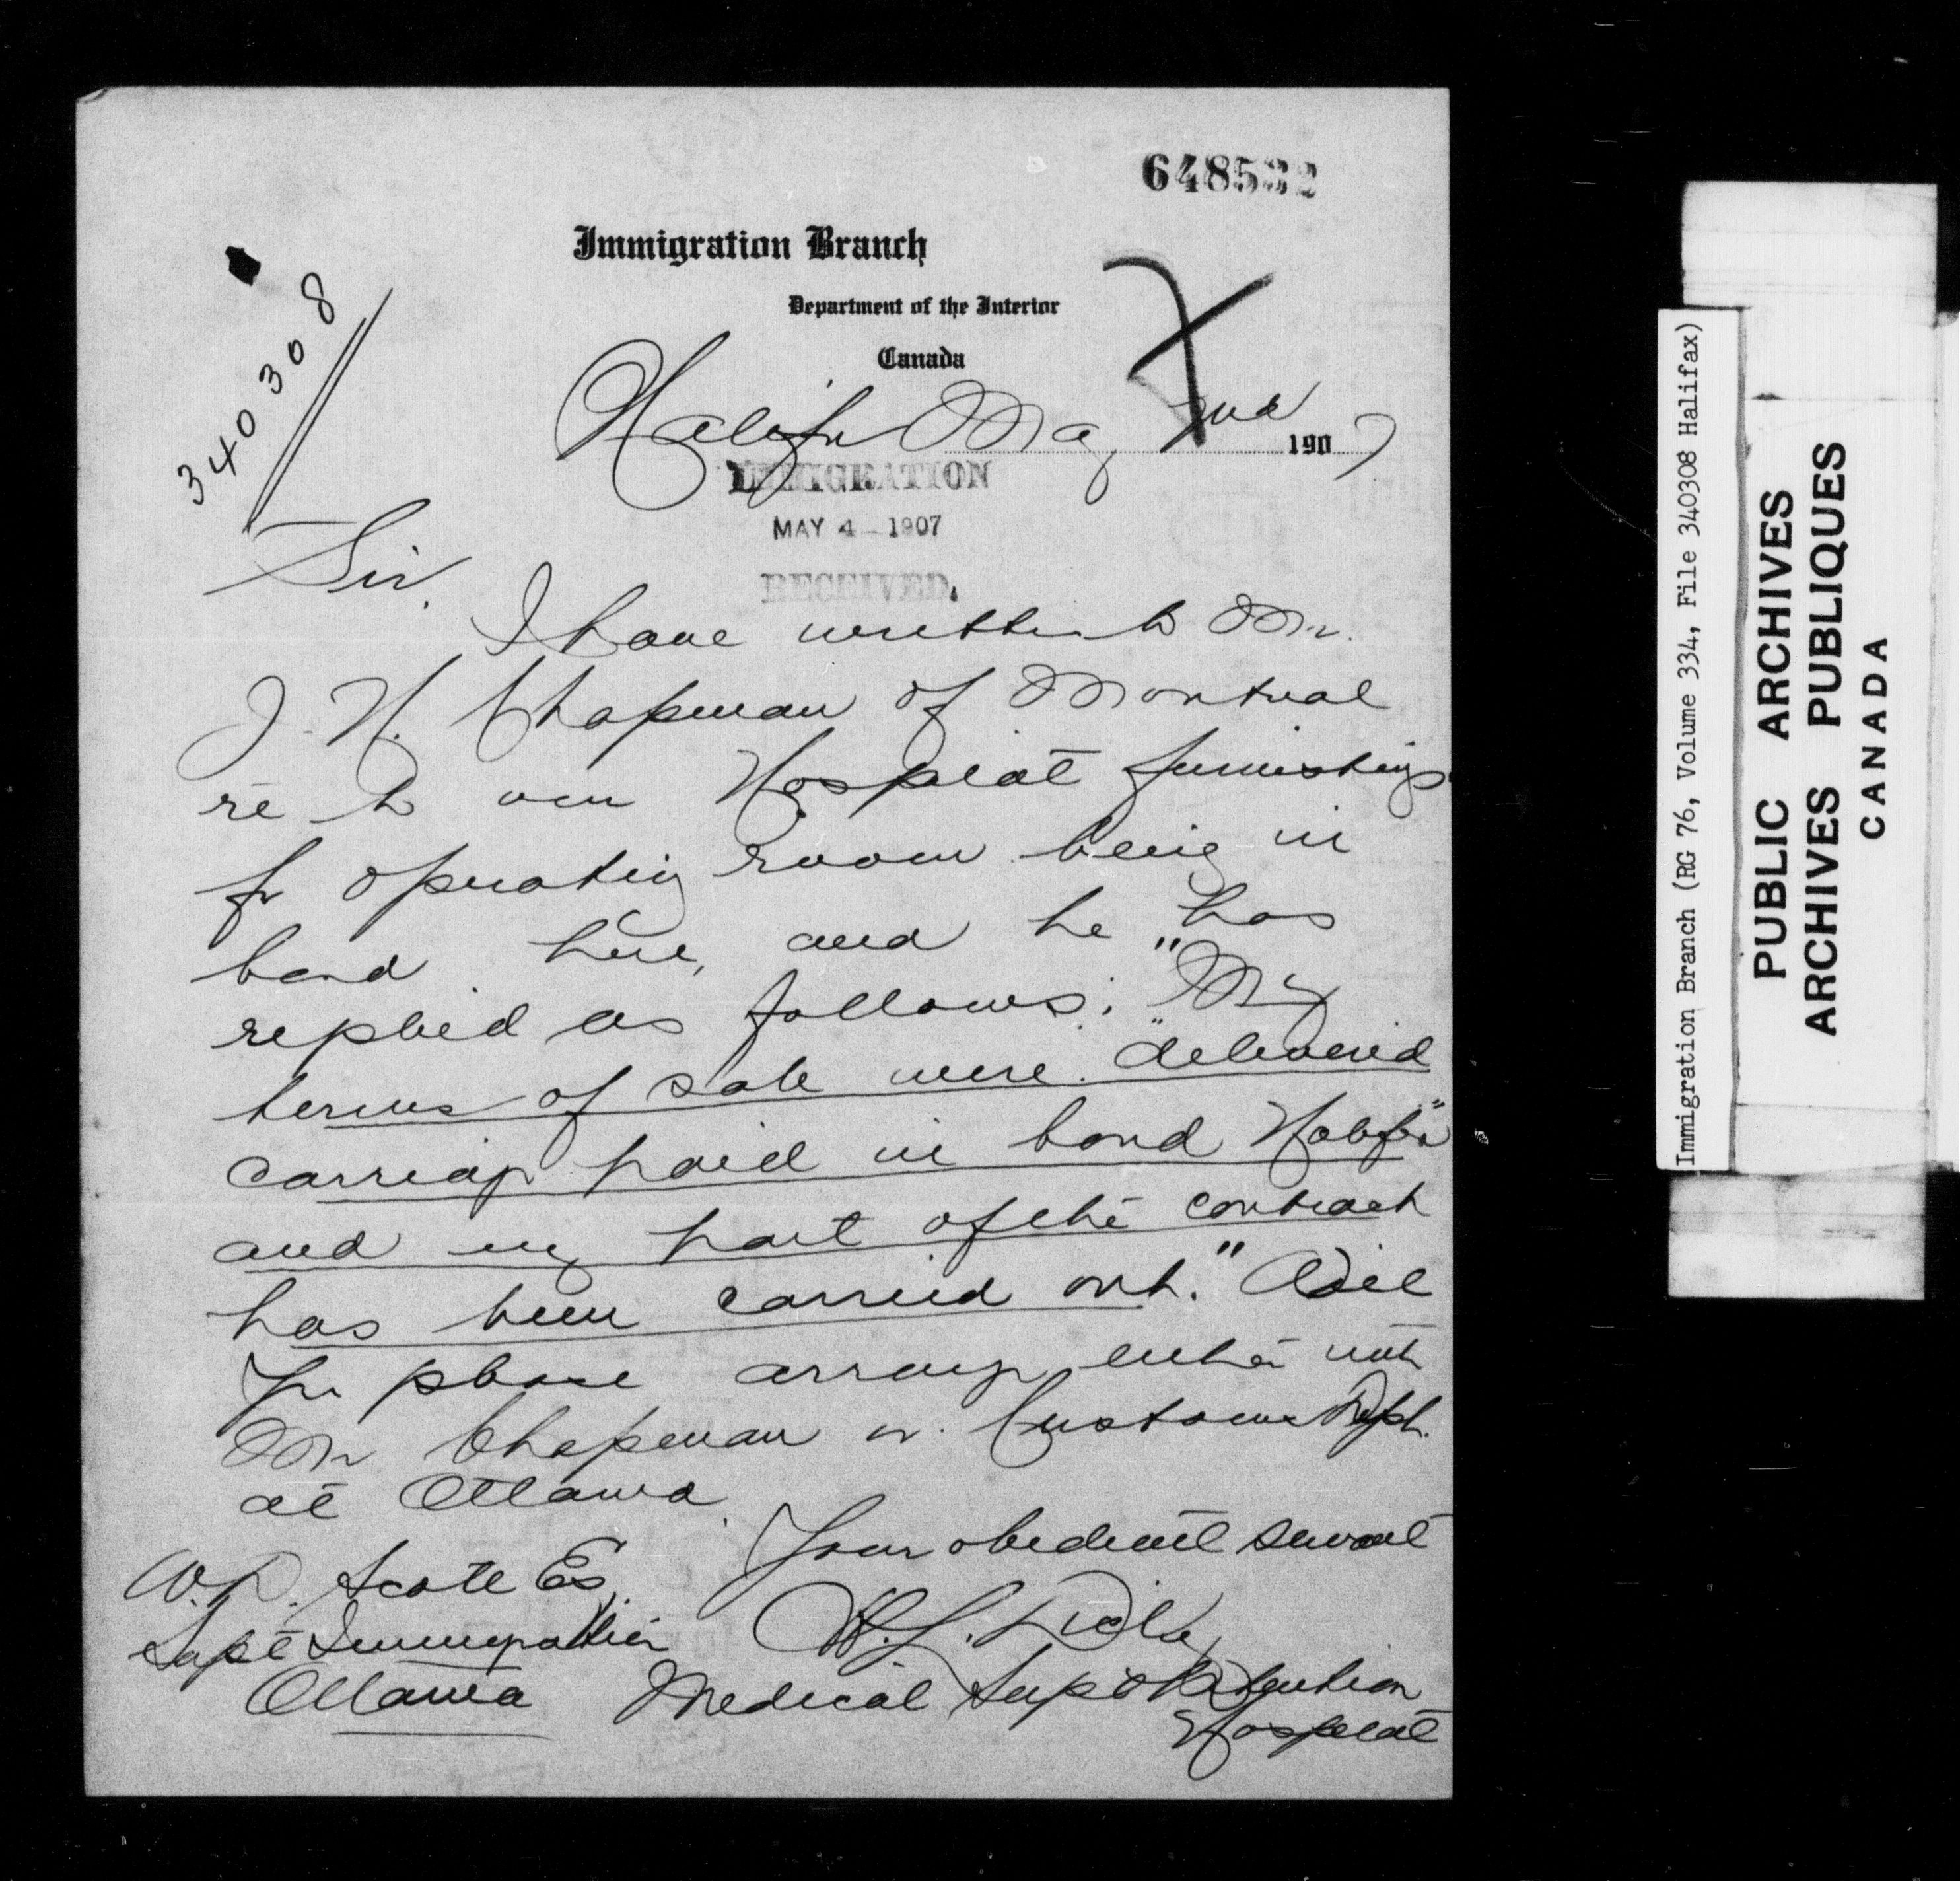 648532
Immigration Branch
Department of the Interior
Canada
340308
Halifax May 2nd 1907
IMMIGRATION
MAY 4 - 1907
RECEIVED.
Sir.
I have written to Mr.
J. H. Chapman of Montreal
re to our Hospital furnishings
for operating room being in
bond here, and he has
replied as follows: "My
terms of sale were "delivered
carriage paid in bond Halifax"
and my part of the contract
has been carried out." Will
you please arrange either with
Mr Chapman or Customs Dept.
at Ottawa
Your obedient servant
W.D. Scott Esq
Supt Immigration
Ottawa
Medical Supt Detention
Hospital
Immigration Branch (RG 76, Volume 334, File 340308 Halifax)
PUBLIC ARCHIVES
ARCHIVES PUBLIQUES
CANADA